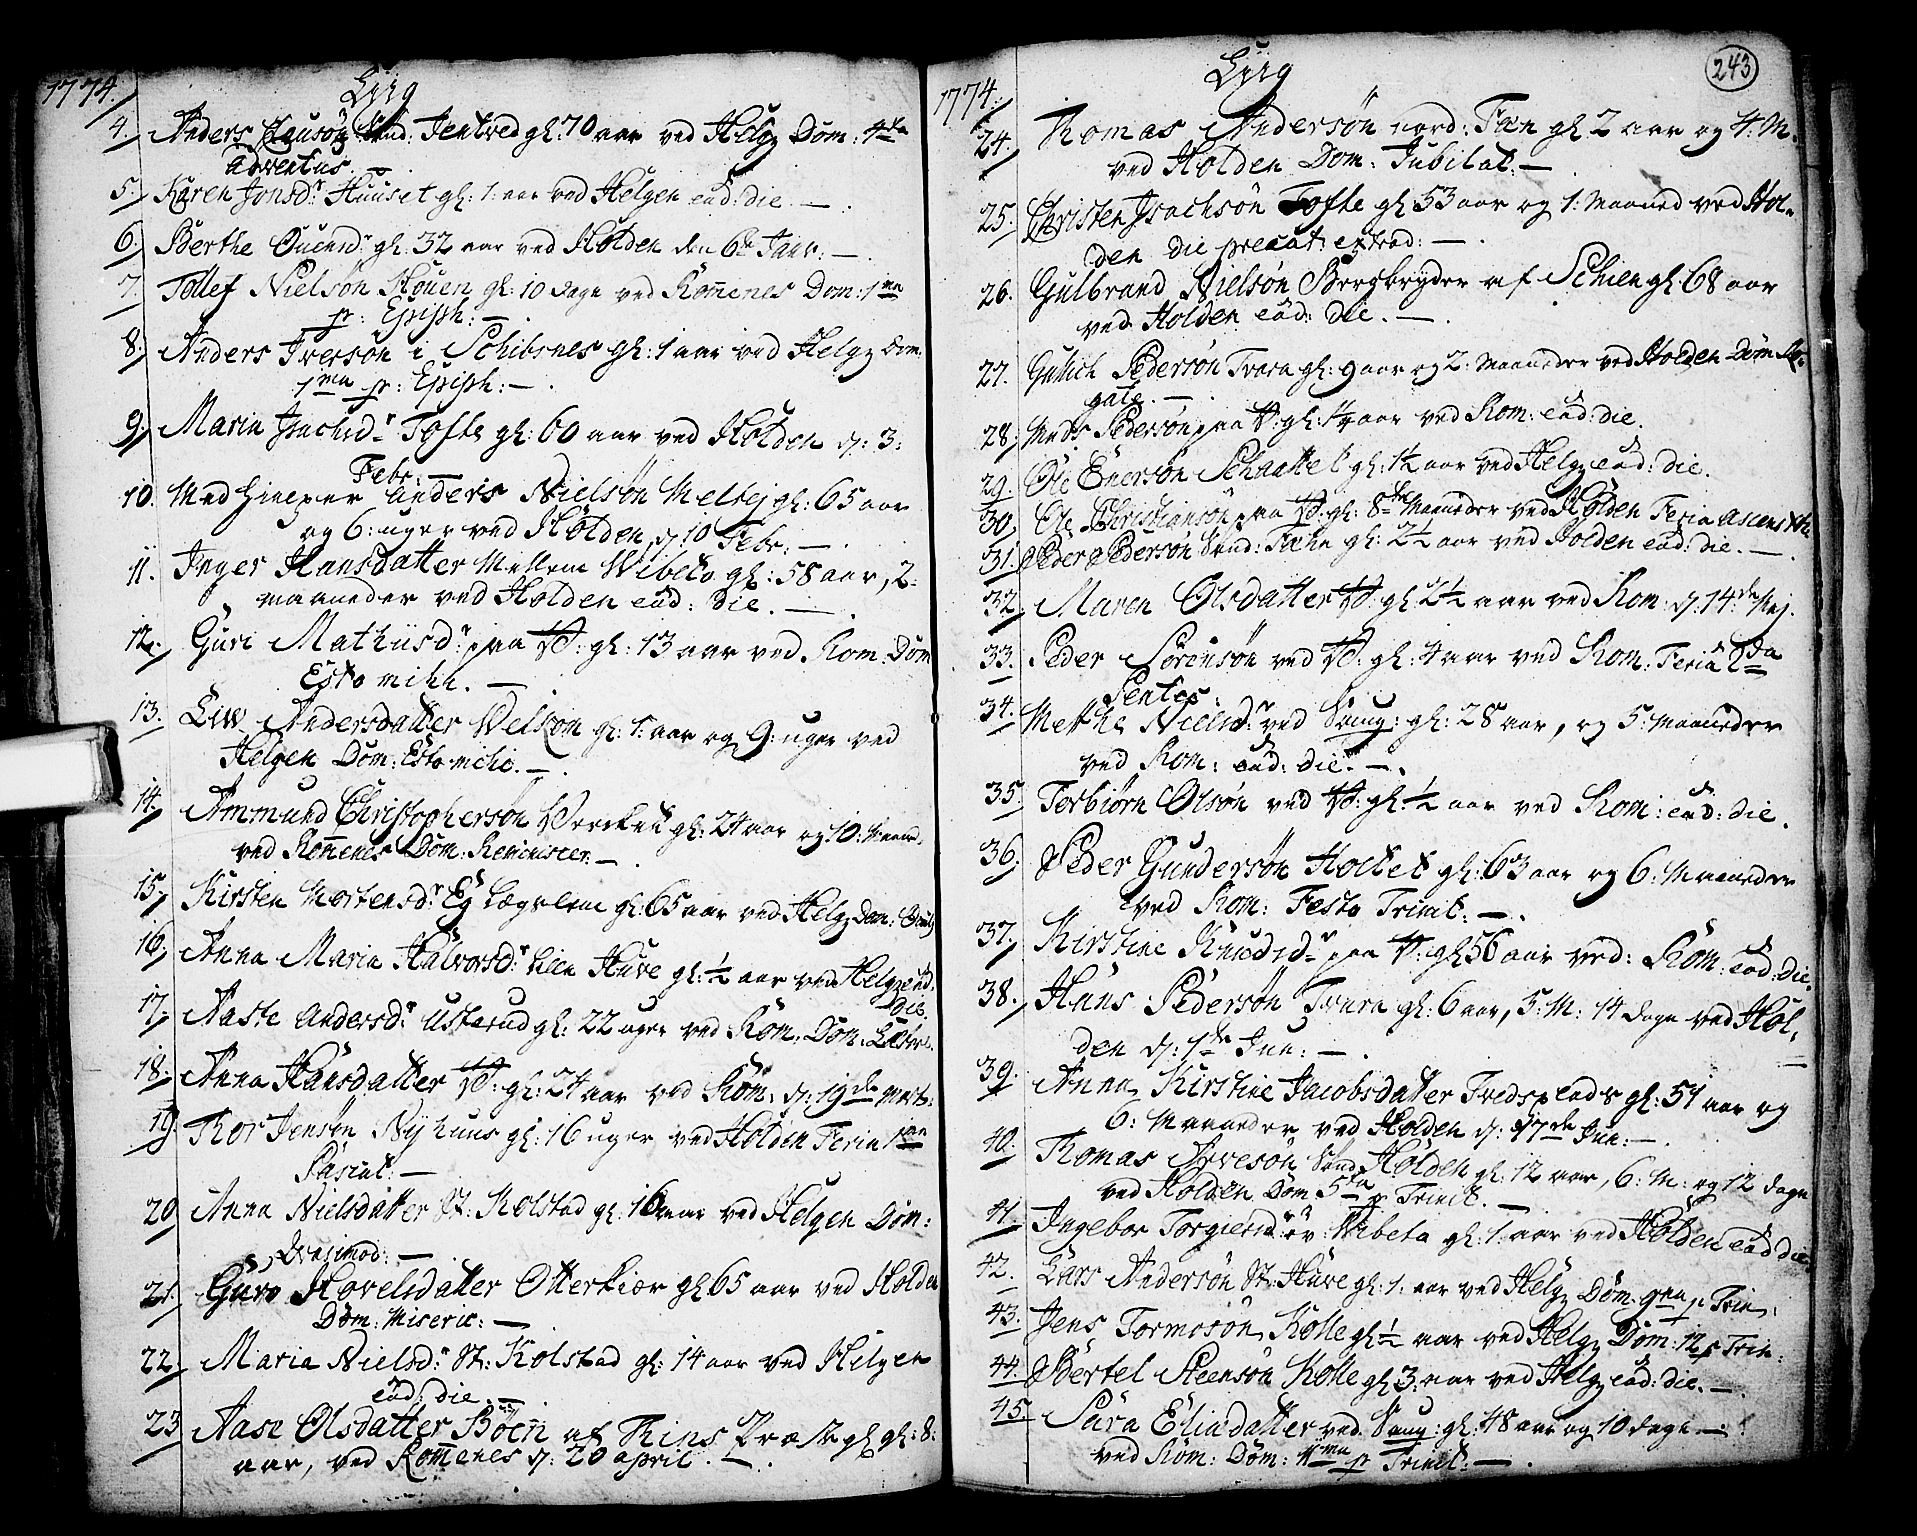 1774. Liig
4. Anders Clausøn Sund: Jentved gl: 70 aar ved Helg: Dom: 4ta
Adventus. —
5. Karen Jonsd:r Huuset gl: 1: aar ved Helgen ead: die. —
6. Berthe Ouensd:r gl: 32 aar ved Holden den 6te Janv: —
7. Tollef Nielsøn Houen gl: 10 dage ved Rommenes Dom: 1ma
p: Epiph: —
8. Anders Iversøn i Schibsnes gl: 1 aar ved Helg: Dom:
1ma p: Epiph: —
9. Maria Isachsd:r Tofte gl: 60 aar ved Holden d: 3:
Febr: —
10. Medhielper Anders Nielsøn Melbej gl: 65 aar
og 6: uger ved Holden, d: 10 Febr: —
11. Inger Hansdatter Mellem Wibeto gl: 58 aar, 2:
maaneder ved Holden ead: die. —
12. Guri Mathiisd:r paa W: gl: 13 aar ved Rom: Dom
Esto mihi. —
13. Liw Andersdatter Velkom gl: 1: aar og 9: uger ved
Helgen Dom: Esto mihi. —
14. Ammund Christophersøn Værket gl: 24 aar og 10: Maan:
ved Rommenes Dom: Reminiscer: —
15. Kirsten Mortensd:r Eg Lægslem gl: 65 aar ved Helg: Dom: Oculi
16. Anna Maria Halvorsd:r lille Huve gl: ½ aar ved Helg: ead:
die.
17. Aaste Andersd:r Usterud gl: 22 uger ved Rom: Dom: Lætare.
18. Anna Hansdatter W: gl: 24 aar ved Rom: d: 19de Mart:
19. Thor Jensøn Nyhuus gl: 16 uger ved Holden Feria 1ma
Pascat: —
20 Anna Nielsdatter St: Kolstad gl: 16 aar ved Helgen Dom:
Qvasimod: —
21. Guro Hovelsdatter Otterkiær gl: 65 aar ved Holden
Dom: Miseric: —
22. Maria Nielsd:r St: Kolstad gl: 14 aar ved Helgen
ead: die. —
23 Aase Olsdatter Bøen af Hins Præstegl gl: 8:
aar, ved Rommenes d: 20 april. —
243
1774. Liig
24. Thomas Andersøn nord: Fæn gl: 2 aar og 4: M:
ved Holden Dom: Jubilat: —
25. Christen Isachsøn Tofte gl: 53 aar og 1: Maaned ved Hol-
den die precat: extrad: —
26. Gulbrand Nielsøn Bergbryder af Schien gl: 68 aar
ved Holden ead: die. —
27. Gullich Pedersøn Tvara gl: 9 aar og 2: Maaneder ved Holden Dom Ro-
gate. —
28. Mads Pedersøn paa W: gl: ¼ aar ved Rom: ead: die.
29. Ole Enersøn Schaattet gl: 1½ aar ved Helg: ead: die.
30. Ole Christiansøn paa W: gl: 8te Maaneder ved Holden Feria Ascens: Xti
31. Peder Pedersøn Sund: Fæhn gl: 2½ aar ved Holden ead: die. —
32 Maren Olsdatter W: gl: 2½ aar ved Rom: d: 14de Maj.
33. Peder Sørensøn ved W: gl: 4 aar ved Rom: Feria 2da
Pentec:
34. Mette Nielsd:r ved Saug: gl: 28 aar, og 5: Maaneder
ved Rom: ead: die. —
35. Torbiørn Olsøn ved W: gl: ½ aar ved Rom: ead: die.
36. Peder Gundersøn Holtet gl: 63 aar og 6: Maaneder
ved Rom: Festo Trinit: —
37. Kirstine Knudsd:r paa W: gl: 56 aar ved: Rom: ead: die.
38. Hans Pedersøn Tvara gl: 6 aar, 5: M: 14 dage ved Hol-
den d: 1te Jun: —
39. Anna Kirstine Jacobsdatter Tredsplads gl: 51 aar og
6: Maaneder ved Holden d: 17de Jun: —
40. Thomas Arvesøn Sund Holden gl: 12 aar, 6: M: og 12 dage
ved Holden Dom 5ta p Trinit. —
41. Ingebor Torgiersd:r øv: Wibeto gl: 1: aar ved Holden ead die.
42. Lars Andersøn St: Huve gl: 1: aar ved Helg: Dom: 9na p Trin:
43. Jens Tormosøn Kolle gl: ½ aar ved Helg: Dom: 12 p Trin:
44. Bertel Steensøn Kolle gl: 3: aar ved Helg: ead: die. —
45 Sara Elindatter ved Saug: gl: 48 aar og 10 dage —
ved Rom: Dom: 4ma p Trinit: —